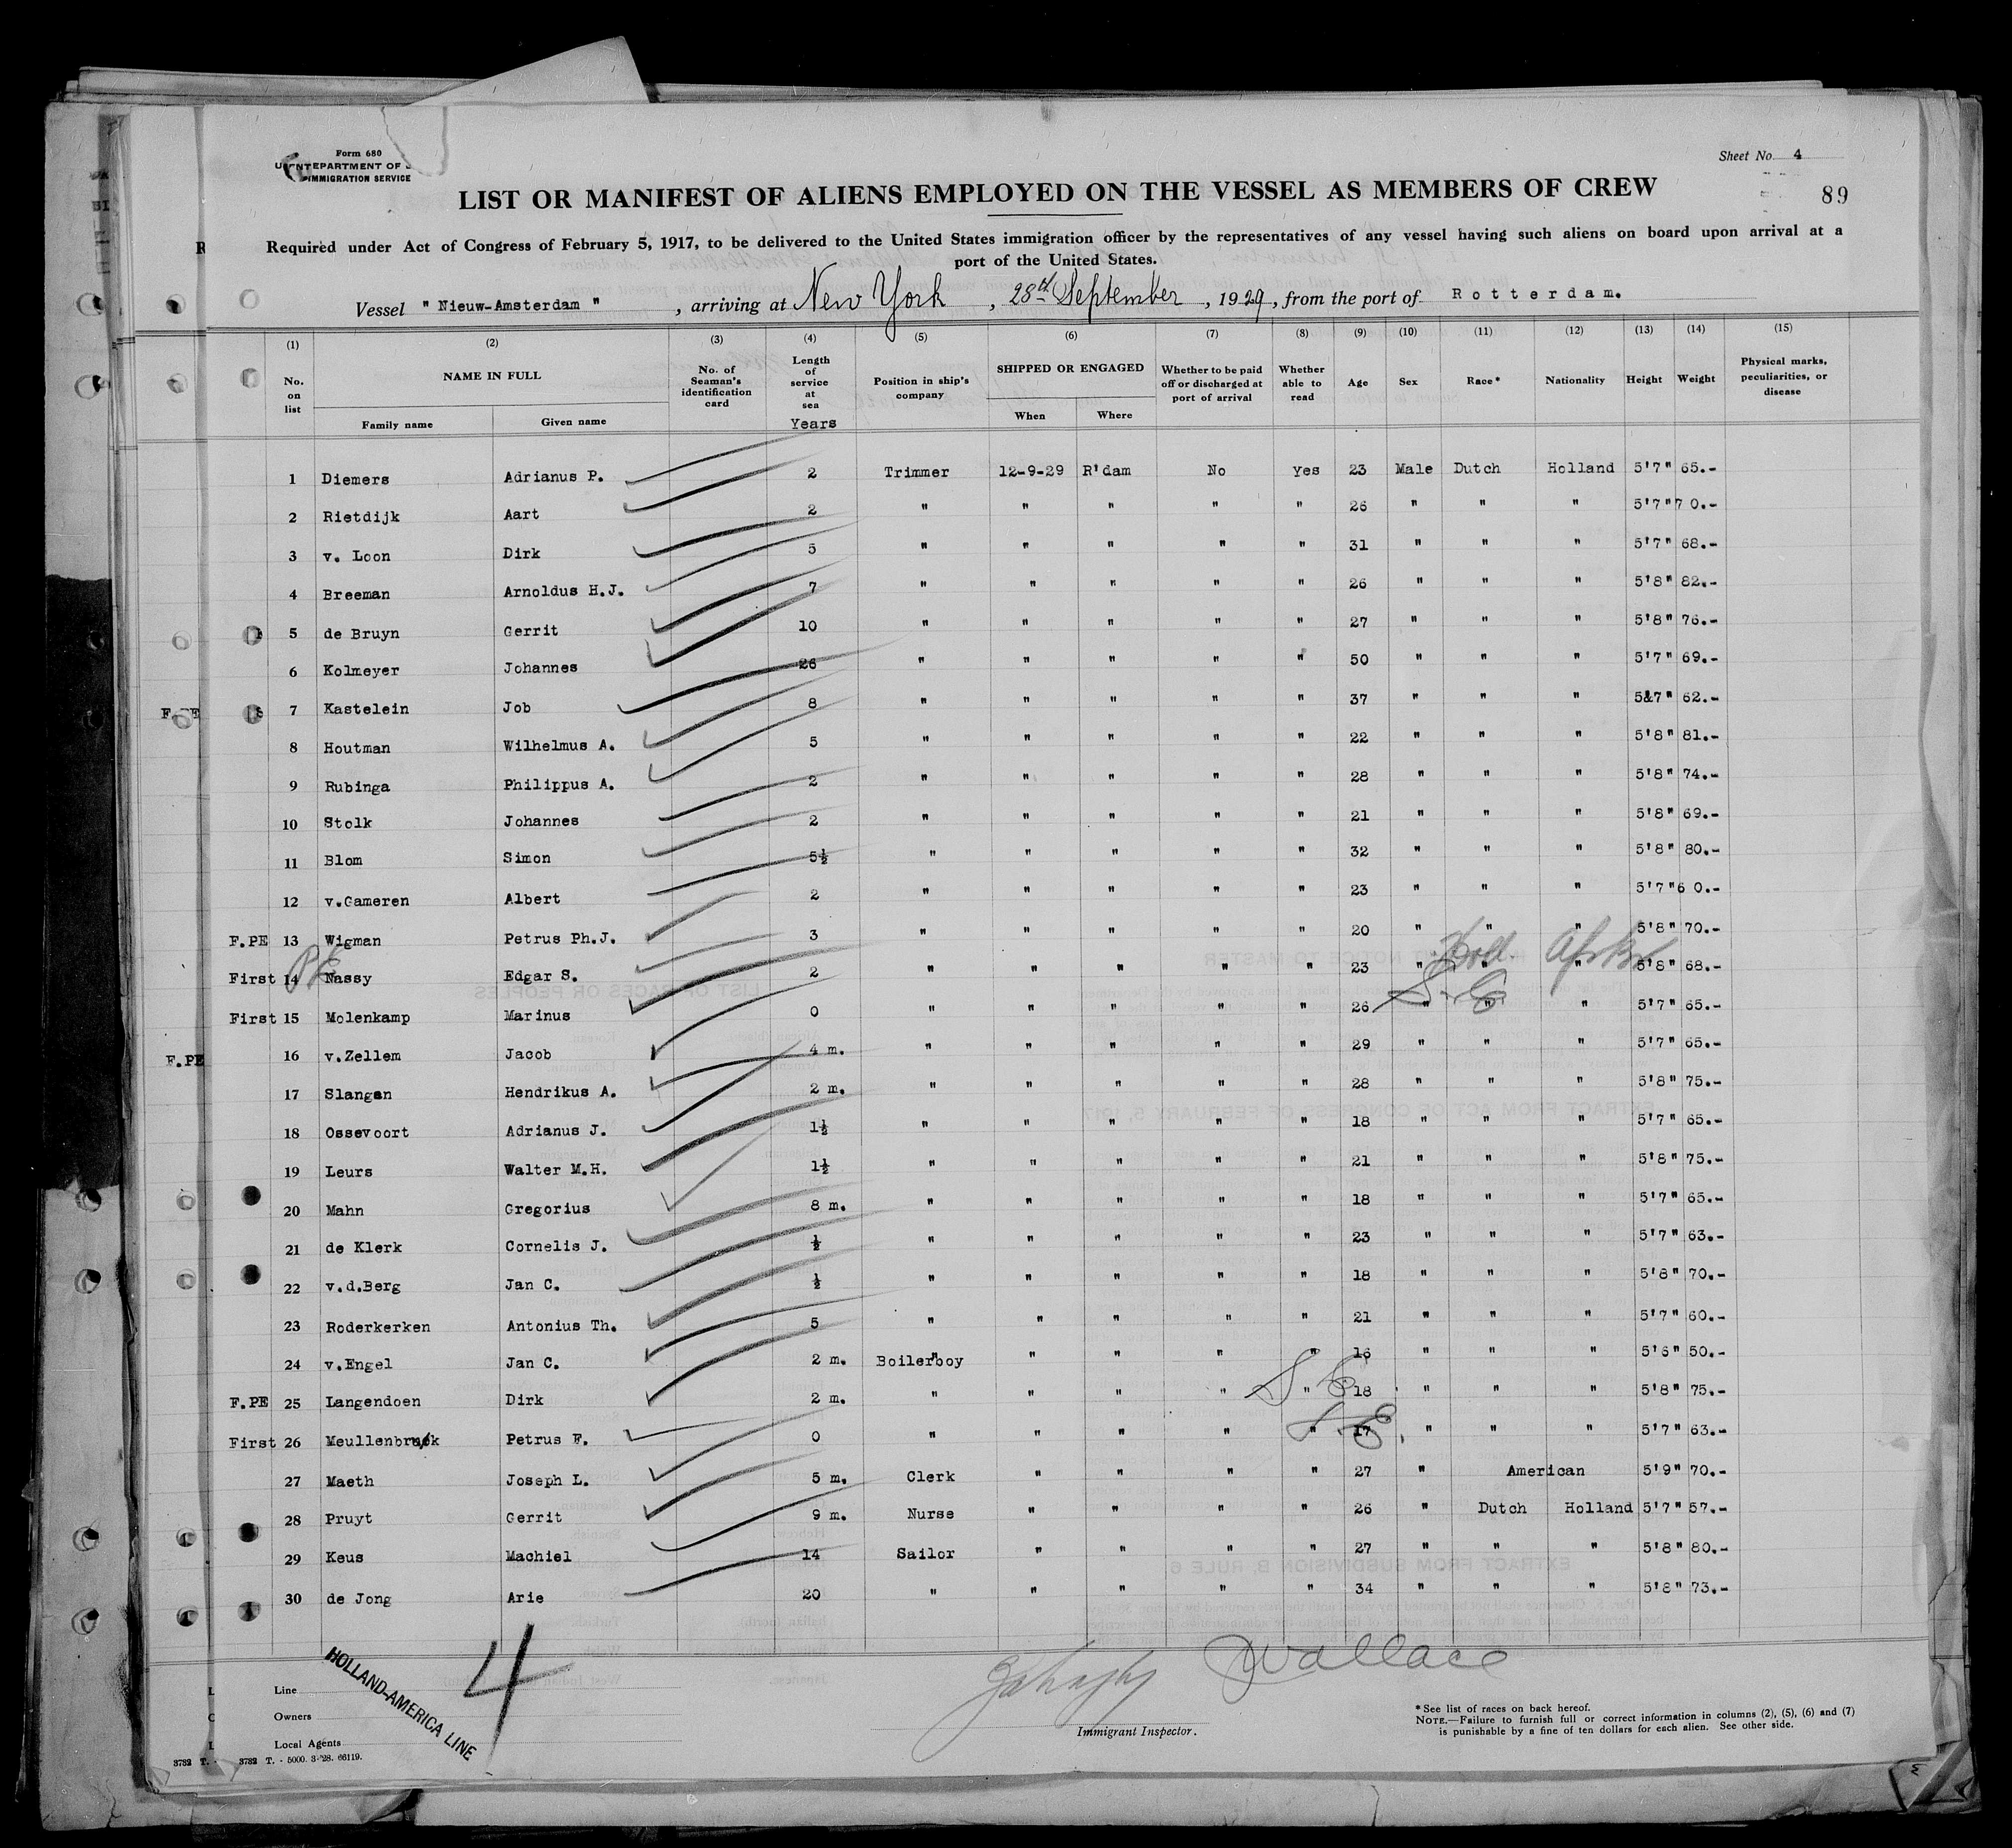 Form 680
EPARTMENT OF
IMMIGRATION SERVICE
Sheet No. 4
89
LIST OR MANIFEST OF ALIENS EMPLOYED ON THE VESSEL AS MEMBERS OF CREW
Required under Act of Congress of February 5, 1917, to be delivered to the United States immigration officer by the representatives of any vessel having such aliens on board upon arrival at a
port of the United States.
Vessel "Nieuw-Amsterdam", arriving at New York, 28th September, 1929, from the port of Rotterdam.
(1) (2) (3) (4) (5) (6) (7) (8) (9) (10) (11) (12) (13) (14) (15)
No. on list NAME IN FULL Family name Given name No. of Seaman's identification card Length of service at sea Years Position in ship's company SHIPPED OR ENGAGED When Where Whether to be paid off or discharged at port of arrival Whether able to read Age Sex Race* Nationality Height Weight Physical marks, peculiarities, or disease
1 Diemers Adrianus P. 2 Trimmer 12-9-29 R'dam No Yes 23 Male Dutch Holland 5'7" 65.-
2 Rietdijk Aart 2 " " " " " 26 " " " 5'7" 70.-
3 v. Loon Dirk 5 " " " " " 31 " " " 5'7" 68.-
4 Breeman Arnoldus H.J. 7 " " " " " 26 " " " 5'8" 82.-
5 de Bruyn Gerrit 10 " " " " " 27 " " " 5'8" 76.-
6 Kolmeyer Johannes 26 " " " " " 50 " " " 5'7" 69.-
F.PE 7 Kastelein Job 8 " " " " " 37 " " " 5&7" 62.-
8 Houtman Wilhelmus A. 5 " " " " " 22 " " " 5'8" 81.-
9 Rubinga Philippus A. 2 " " " " " 28 " " " 5'8" 74.-
10 Stolk Johannes 2 " " " " " 21 " " " 5'8" 69.-
11 Blom Simon 5½ " " " " " 32 " " " 5'8" 80.-
12 v.Gameren Albert 2 " " " " " 23 " " " 5'7" 60.-
F.PE 13 Wigman Petrus Ph.J. 3 " " " " " 20 " " " 5'8" 70.-
First 14 Nassy Edgar S. 2 " " " " " 23 " " " 5'8" 68.-
First 15 Molenkamp Marinus 0 " " " " " 26 S.E. " " 5'7" 65.-
F.PE 16 v.Zellem Jacob 4 m. " " " " " 29 " " " 5'7" 65.-
17 Slangen Hendrikus A. 2 m. " " " " " 28 " " " 5'8" 75.-
18 Ossevoort Adrianus J. 1½ " " " " " 18 " " " 5'7" 65.-
19 Leurs Walter M.H. 1½ " " " " " 21 " " " 5'8" 75.-
20 Mahn Gregorius 8 m. " " " " " 18 " " " 5'7" 65.-
21 de Klerk Cornelis J. ½ " " " " " 23 " " " 5'7" 63.-
22 v.d.Berg Jan C. ½ " " " " " 18 " " " 5'8" 70.-
23 Roderkerken Antonius Th. 5 " " " " " 21 " " " 5'7" 60.-
24 v.Engel Jan C. 2 m. Boilerboy " " " " 16 " " " 5'6" 50.-
F.PE 25 Langendoen Dirk 2 m. " " " " " S.E. 18 " " " 5'8" 75.-
First 26 Meullenbrock Petrus F. 0 " " " " " S.E. 17 " " " 5'7" 63.-
27 Maeth Joseph L. 5 m. Clerk " " " " 27 " American 5'9" 70.-
28 Pruyt Gerrit 9 m. Nurse " " " " 26 " Dutch Holland 5'7" 57.-
29 Keus Machiel 14 Sailor " " " " 27 " " " 5'8" 80.-
30 de Jong Arie 20 " " " " " 34 " " " 5'8" 73.-
4
Wallace
Line
Owners
Local Agents
HOLLAND-AMERICA LINE
Immigrant Inspector.
* See list of races on back hereof.
NOTE.—Failure to furnish full or correct information in columns (2), (5), (6) and (7)
is punishable by a fine of ten dollars for each alien. See other side.
3732 T. - 3732 T. - 5000. 3-'28. 66119.